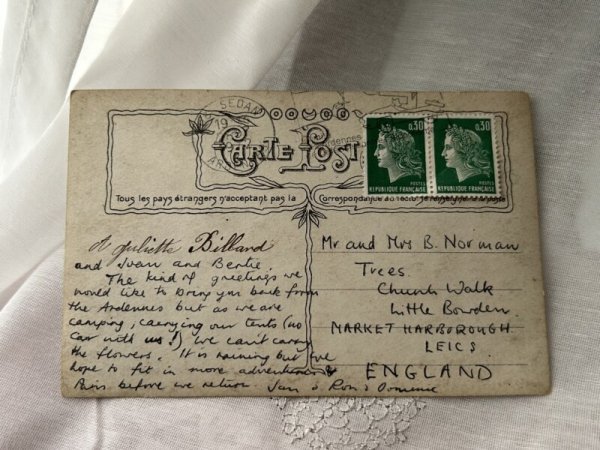 SEDAN
19
AR
Ardennes
CARTE POST
0,30
0,30
POSTES
POSTES
REPUBLIQUE FRANÇAISE
REPUBLIQUE FRANÇAISE
Tous les pays étrangers n'acceptant pas la Correspondance au recto
A Juliette Billard
and Joan and Bertie.
The kind of greetings we
would like to bring you back from
the Ardennes but as we are
camping, carrying our tents (no
car with us!) we can't carry
the flowers. It is raining but we
hope to fit in more adventures &
Paris before we return Jan & Ron &
Mr and Mrs B. Norman
Trees
Church Walk
Little Bowden
MARKET HARBOROUGH
LEICS
ENGLAND